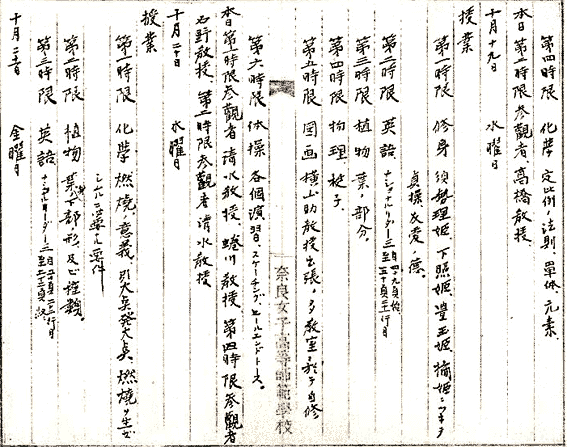 第四時限 化學 定比例ノ法則、單体、元素、
本日第二時限参觀者、高橋教授、
十月十九日 水曜日
授業
第一時限 修身 須勢理姫、下照姫、豊玉姫、橘姫ニツキテ
貞操及愛ノ徳、
第二時限 英語、ナショナルリーダー三
第三時限 植物 葉ノ部分、
第四時限 物理 梃子、
第五時限 図画 横山助教授出張ノタメ教室ニ於テ自修
奈良女子高等師範學校
第六時限 体操 各個演習、スケーチング、ヒールエンドトース。
本日第一時限参觀者 清水教授、蜷川教授、第四時限参觀者
教授、第二時限参觀者 清水教授
十月二十日 木曜日
授業
第一時限 化學 燃焼ノ意義、引火点発火点、燃焼ヲ生ズ
第二時限 植物 葉ノ下部ノ形及ビ種類、
第三時限 英語 ナショナルリーダー三
金曜日